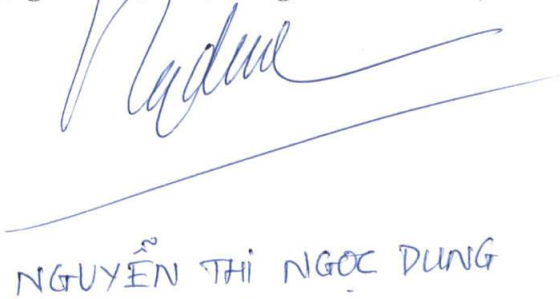 NGUYỄN THI NGỌC DUNG